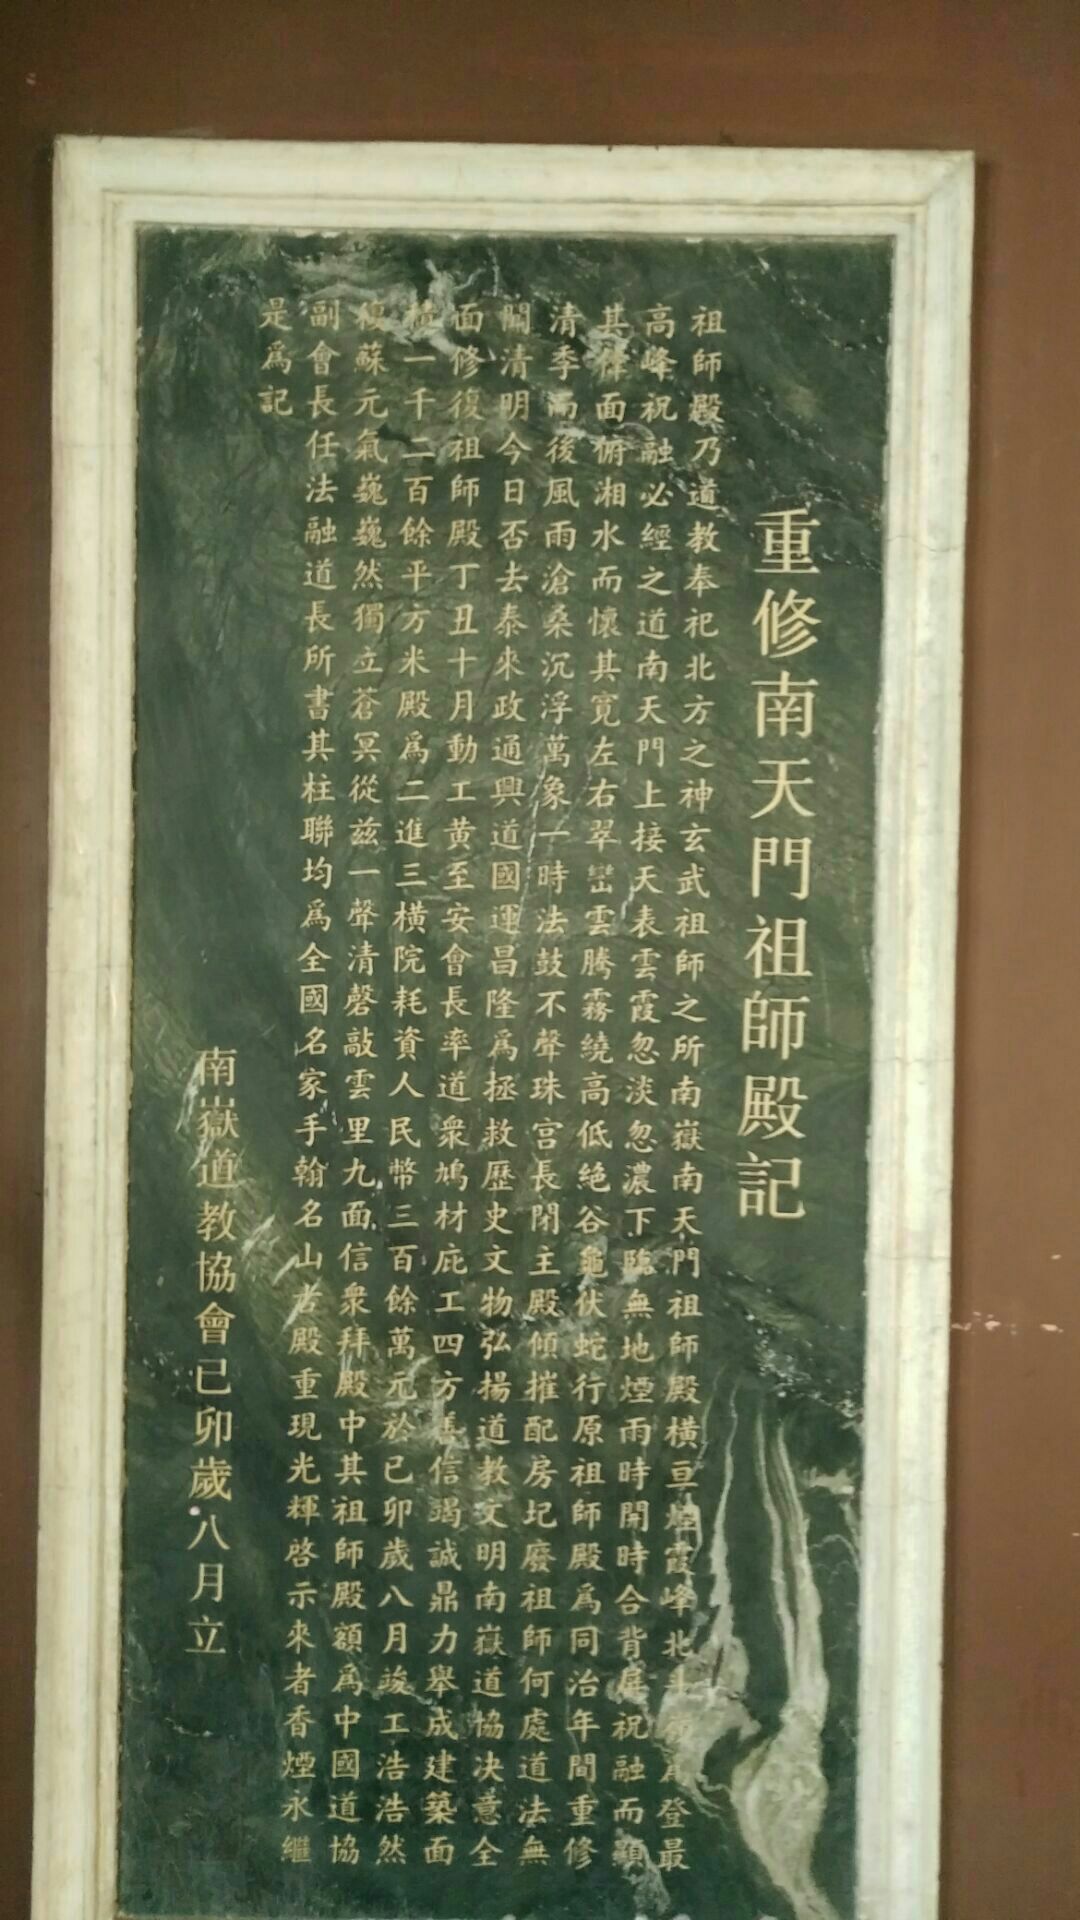 重修南天門祖師殿記
祖師殿乃道教奉祀北方之神玄武祖師之所南嶽南天門祖師殿橫亘煙霞峰北斗登最
高峰祝融必經之道南天門上接天表雲霞忽淡忽濃下臨無地煙雨時開時合背屏祝融而顯
其偉面俯湘水而懷其寬左右翠巒雲騰霧繞高低絕谷龜伏蛇行原祖師殿爲同治年間重修
清季而後風雨滄桑沉浮萬象一時法鼓不聲珠宮長閉主殿傾摧配房圮廢祖師何處道法無
關清明今日否去泰來政通興道國運昌隆爲拯救歷史文物弘揚道教文明南嶽道協決意全
面修復祖師殿丁丑十月動工黃至安會長率道衆鳩材庇工四方善信竭誠鼎力舉成建築面
積一千二百餘平方米殿爲二進三橫院耗資人民幣三百餘萬元於己卯歲八月竣工浩浩然
復蘇元氣巍巍然獨立蒼冥從兹一聲清磬敲雲里九面信衆拜殿中其祖師殿額爲中國道協
副會長任法融道長所書其柱聯均爲全國名家手翰名山古殿重現光輝啓示來者香煙永繼
是爲記
南嶽道教協會己卯歲八月立